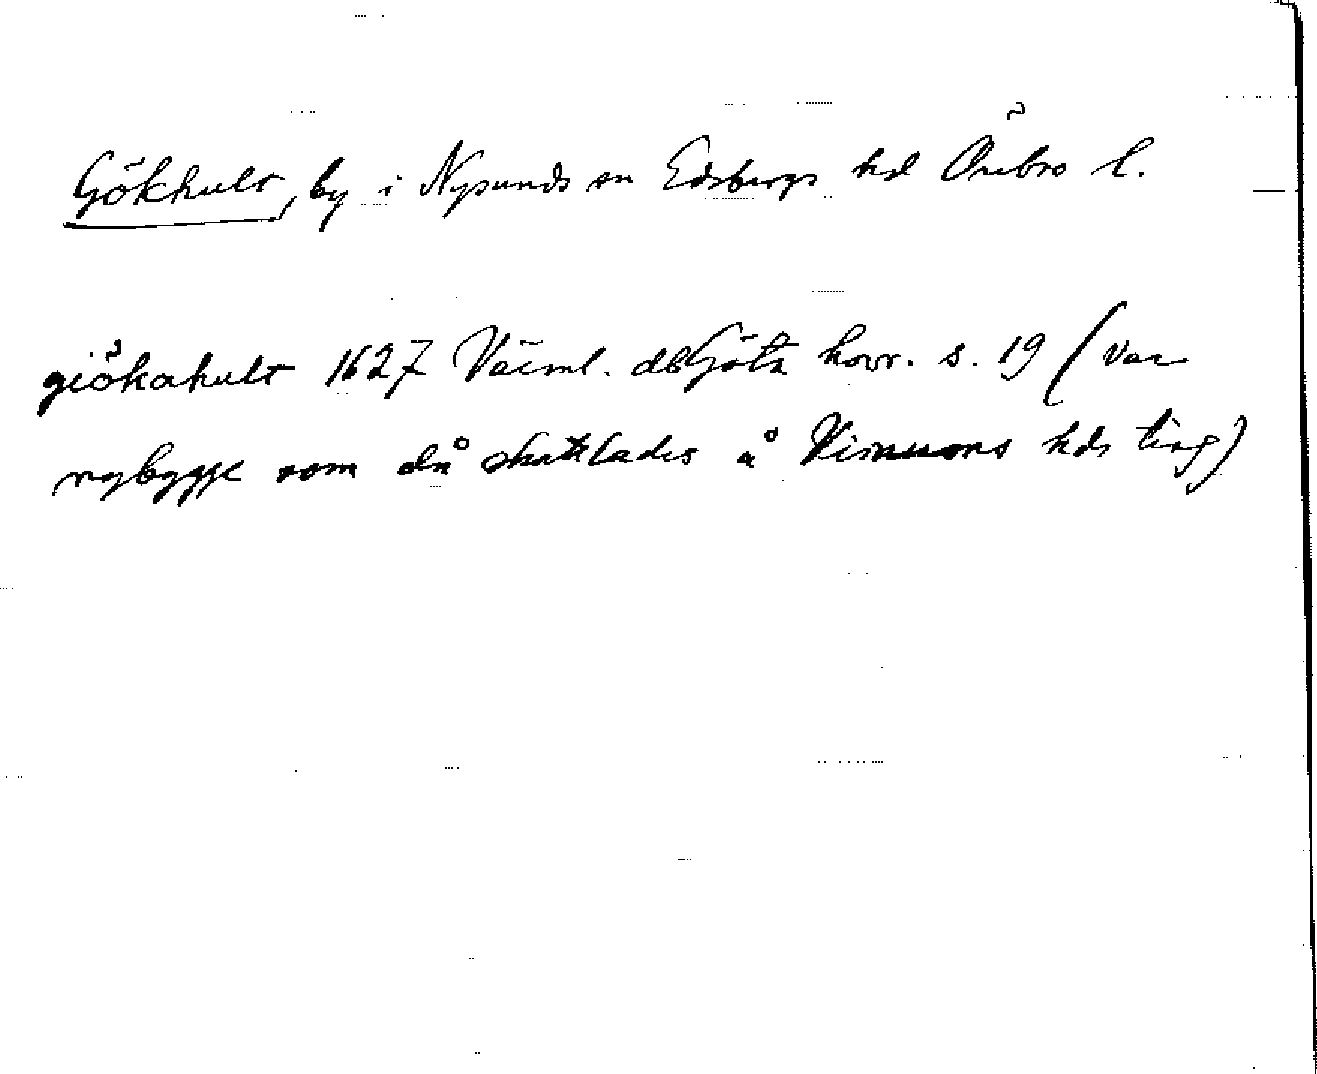 Gökhult, by i Nysunds sn Edsbergs hd Örebro l.
giökahult 1627 Värml. db Göta hovr. s. 19 (var
nybygge som då skattlades å Visnums hds ting)